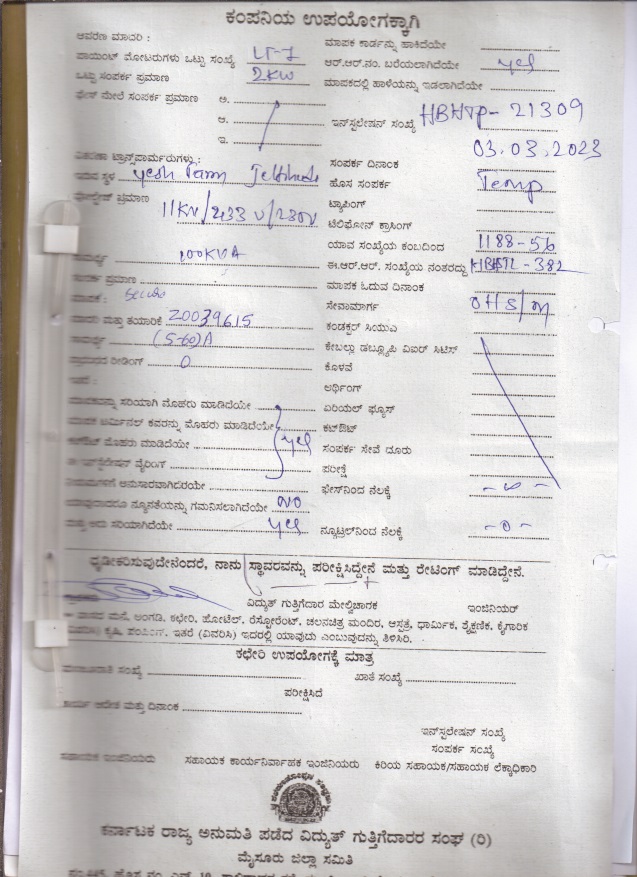 ಕಂಪನಿಯ ಉಪಯೋಗಕ್ಕಾಗಿ
ಆವರಣ ಮಾದರಿ : ಮಾಪಕ ಕಾರ್ಡನ್ನು ಹಾಕಿದೆಯೇ
ಪಾಯಿಂಟ್ ಮೋಟರುಗಳು ಒಟ್ಟು ಸಂಖ್ಯೆ LT-7 ಆರ್.ಆರ್.ನಂ. ಬರೆಯಲಾಗಿದೆಯೇ yes
ಒಟ್ಟು ಸಂಪರ್ಕ ಪ್ರಮಾಣ 2KW ಮಾಪಕದಲ್ಲಿ ಹಾಳೆಯನ್ನು ಇಡಲಾಗಿದೆಯೇ
ಫೇಸ್ ಮೇಲೆ ಸಂಪರ್ಕ ಪ್ರಮಾಣ ಅ.
ಆ. ಇನ್ಸ್ಟಲೇಷನ್ ಸಂಖ್ಯೆ HBHTP-21309
ಇ.
ವಿತರಣಾ ಟ್ರಾನ್ಸ್‌ಫಾರ್ಮರುಗಳು : ಸಂಪರ್ಕ ದಿನಾಂಕ 03.03.2023
ಇರುವ ಸ್ಥಳ ಹೊಸ ಸಂಪರ್ಕ Temp
ವೋಲ್ಟೇಜ್ ಪ್ರಮಾಣ ಟ್ಯಾಪಿಂಗ್
11KV/433V/230V ಟೆಲಿಫೋನ್ ಕ್ರಾಸಿಂಗ್
ಯಾವ ಸಂಖ್ಯೆಯ ಕಂಬದಿಂದ 1188-56
ಸಾಮರ್ಥ್ಯ 100KVA ಈ.ಆರ್.ಆರ್. ಸಂಖ್ಯೆಯ ನಂತರದ್ದು HBHTL-382
ಸಂಪರ್ಕ ಪ್ರಮಾಣ ಮಾಪಕ ಓದುವ ದಿನಾಂಕ
ಮಾಪಕ : ಸೇವಾಮಾರ್ಗ OHS/M
ಮಾದರಿ ಮತ್ತು ತಯಾರಿಕೆ 20039615 ಕಂಡಕ್ಟರ್ ಸಿಯುಎ
ಸಾಮರ್ಥ್ಯ (5-60)A ಕೇಬಲ್ಲು ಡಬ್ಲ್ಯೂಪಿ ವಿಐಆರ್ ಸಿಟಿಸ್
ರೀಡಿಂಗ್ 0 ಕೊಳವೆ
ಇದೆ : ಅರ್ಥಿಂಗ್
ಮಾಪಕವನ್ನು ಸರಿಯಾಗಿ ಮೊಹರು ಮಾಡಿದೆಯೇ ಏರಿಯಲ್ ಫ್ಯೂಸ್
ಮಾಪಕ ಟರ್ಮಿನಲ್ ಕವರನ್ನು ಮೊಹರು ಮಾಡಿದೆಯೇ ಕಟ್‌ಔಟ್
ಕಟ್‌ಔಟ್ ಮೊಹರು ಮಾಡಿದೆಯೇ yes ಸಂಪರ್ಕ ಸೇವೆ ದೂರು
ಈ ಇನ್ಸ್ಟಲೇಷನ್ ವೈರಿಂಗ್ ಪರೀಕ್ಷೆ
ನಿಯಮಗಳಿಗೆ ಅನುಸಾರವಾಗಿದೆಯೇ ಫೇಸ್‌ನಿಂದ ನೆಲಕ್ಕೆ
ಯಾವುದಾದರೂ ನ್ಯೂನತೆಯನ್ನು ಗಮನಿಸಲಾಗಿದೆಯೇ NO
ಮತ್ತು ಅದು ಸರಿಯಾಗಿದೆಯೇ yes ನ್ಯೂಟ್ರಲ್‌ನಿಂದ ನೆಲಕ್ಕೆ -0-
ಧೃಡೀಕರಿಸುವುದೇನೆಂದರೆ, ನಾನು ಸ್ಥಾವರವನ್ನು ಪರೀಕ್ಷಿಸಿದ್ದೇನೆ ಮತ್ತು ರೇಟಿಂಗ್ ಮಾಡಿದ್ದೇನೆ.
ವಿದ್ಯುತ್ ಗುತ್ತಿಗೆದಾರ ಮೇಲ್ವಿಚಾರಕ ಇಂಜಿನಿಯರ್
ಮನೆ, ಅಂಗಡಿ, ಕಛೇರಿ, ಹೋಟೆಲ್, ರೆಸ್ಟೋರೆಂಟ್, ಚಲನಚಿತ್ರ ಮಂದಿರ, ಆಸ್ಪತ್ರೆ, ಧಾರ್ಮಿಕ, ಶೈಕ್ಷಣಿಕ, ಕೈಗಾರಿಕ
(ವಿವರಿಸಿ) ಕೃಷಿ, ಪಂಪಿಂಗ್, ಇತರೆ (ವಿವರಿಸಿ) ಇದರಲ್ಲಿ ಯಾವುದು ಎಂಬುವುದನ್ನು ತಿಳಿಸಿರಿ.
ಕಛೇರಿ ಉಪಯೋಗಕ್ಕೆ ಮಾತ್ರ
ಮಂಜೂರಾತಿ ಸಂಖ್ಯೆ ಖಾತೆ ಸಂಖ್ಯೆ
ಪರೀಕ್ಷಿಸಿದೆ
ಕಾರ್ಯ ಆದೇಶ ಮತ್ತು ದಿನಾಂಕ
ಇನ್ಸ್ಟಲೇಷನ್ ಸಂಖ್ಯೆ
ಸಂಪರ್ಕ ಸಂಖ್ಯೆ
ಸಹಾಯಕ ಇಂಜಿನಿಯರು ಸಹಾಯಕ ಕಾರ್ಯನಿರ್ವಾಹಕ ಇಂಜಿನಿಯರು ಕಿರಿಯ ಸಹಾಯಕ/ಸಹಾಯಕ ಲೆಕ್ಕಾಧಿಕಾರಿ
ಕರ್ನಾಟಕ ರಾಜ್ಯ ಅನುಮತಿ ಪಡೆದ ವಿದ್ಯುತ್ ಗುತ್ತಿಗೆದಾರರ ಸಂಘ (ರಿ)
ಮೈಸೂರು ಜಿಲ್ಲಾ ಸಮಿತಿ